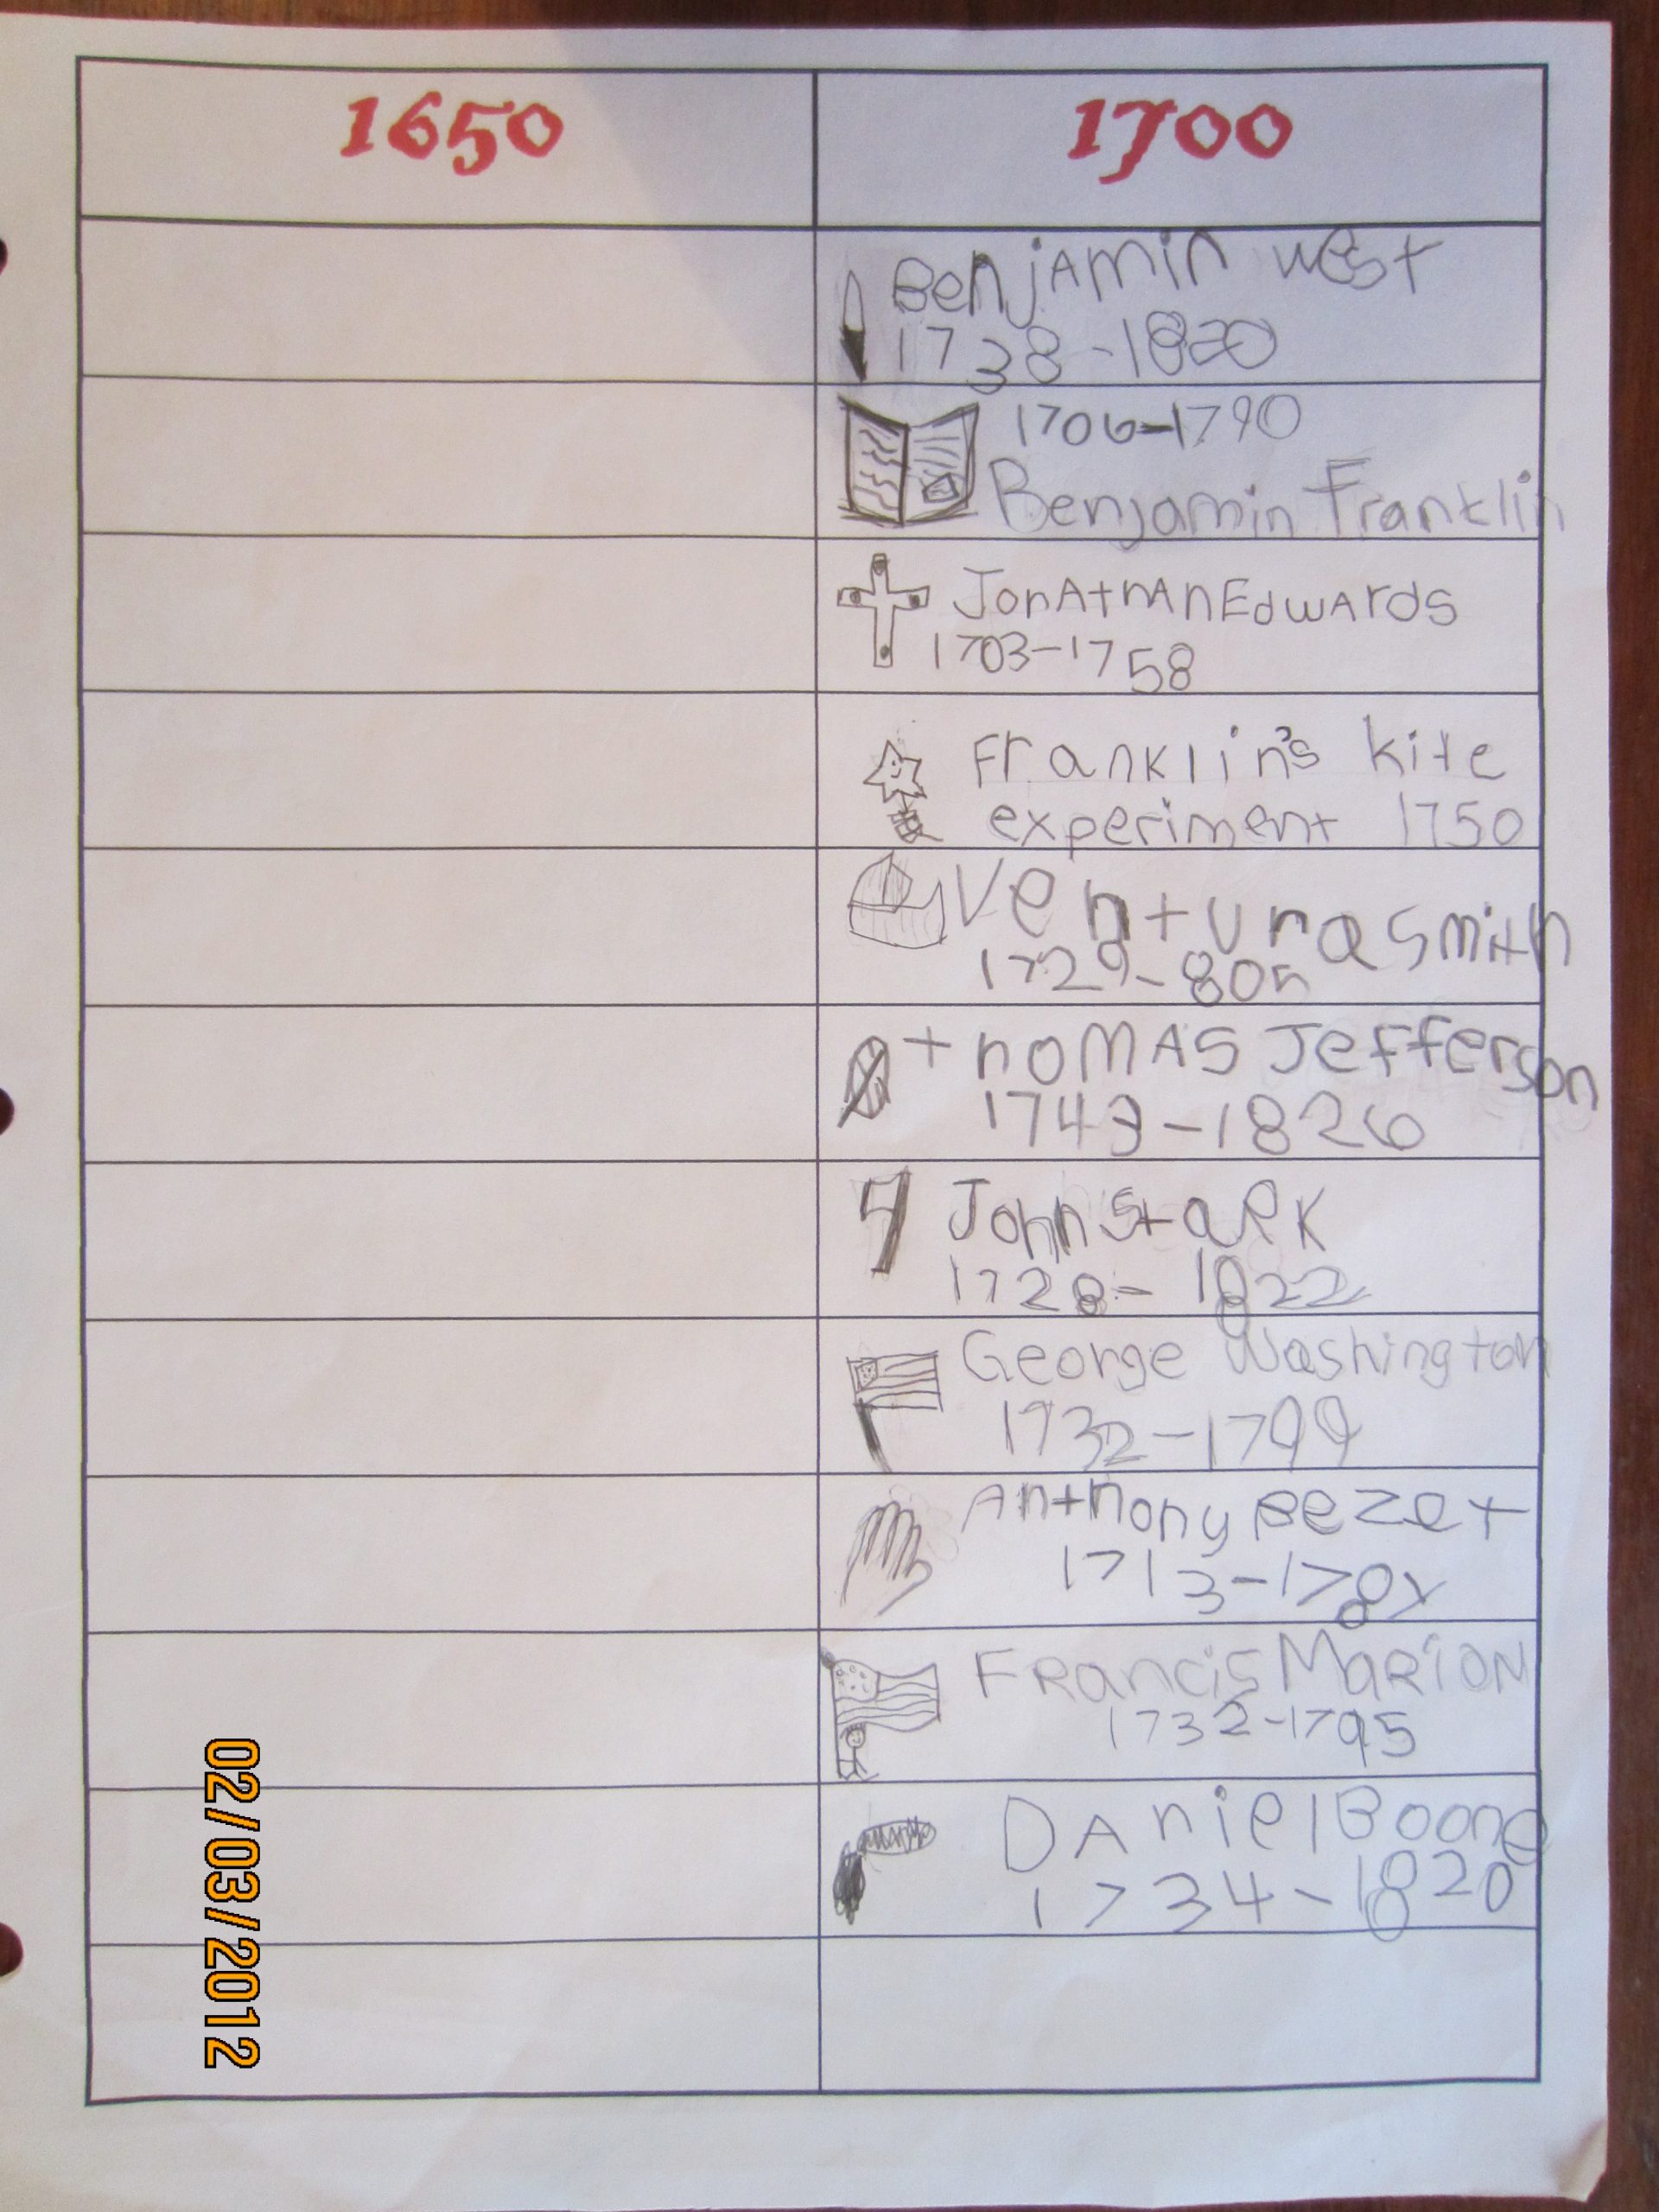 1650
1700
Benjamin West
1738-1820
1706-1790
Benjamin Franklin
Jonathan Edwards
1703-1758
Franklin's kite
experiment 1750
Ventura Smith
1729-805
Thomas Jefferson
1743-1826
John Stark
1728-1822
George Washington
1732-1799
Anthony Bezet
1713-178
Francis Marion
1732-1795
Daniel Boone
1734-1820
02/03/2012